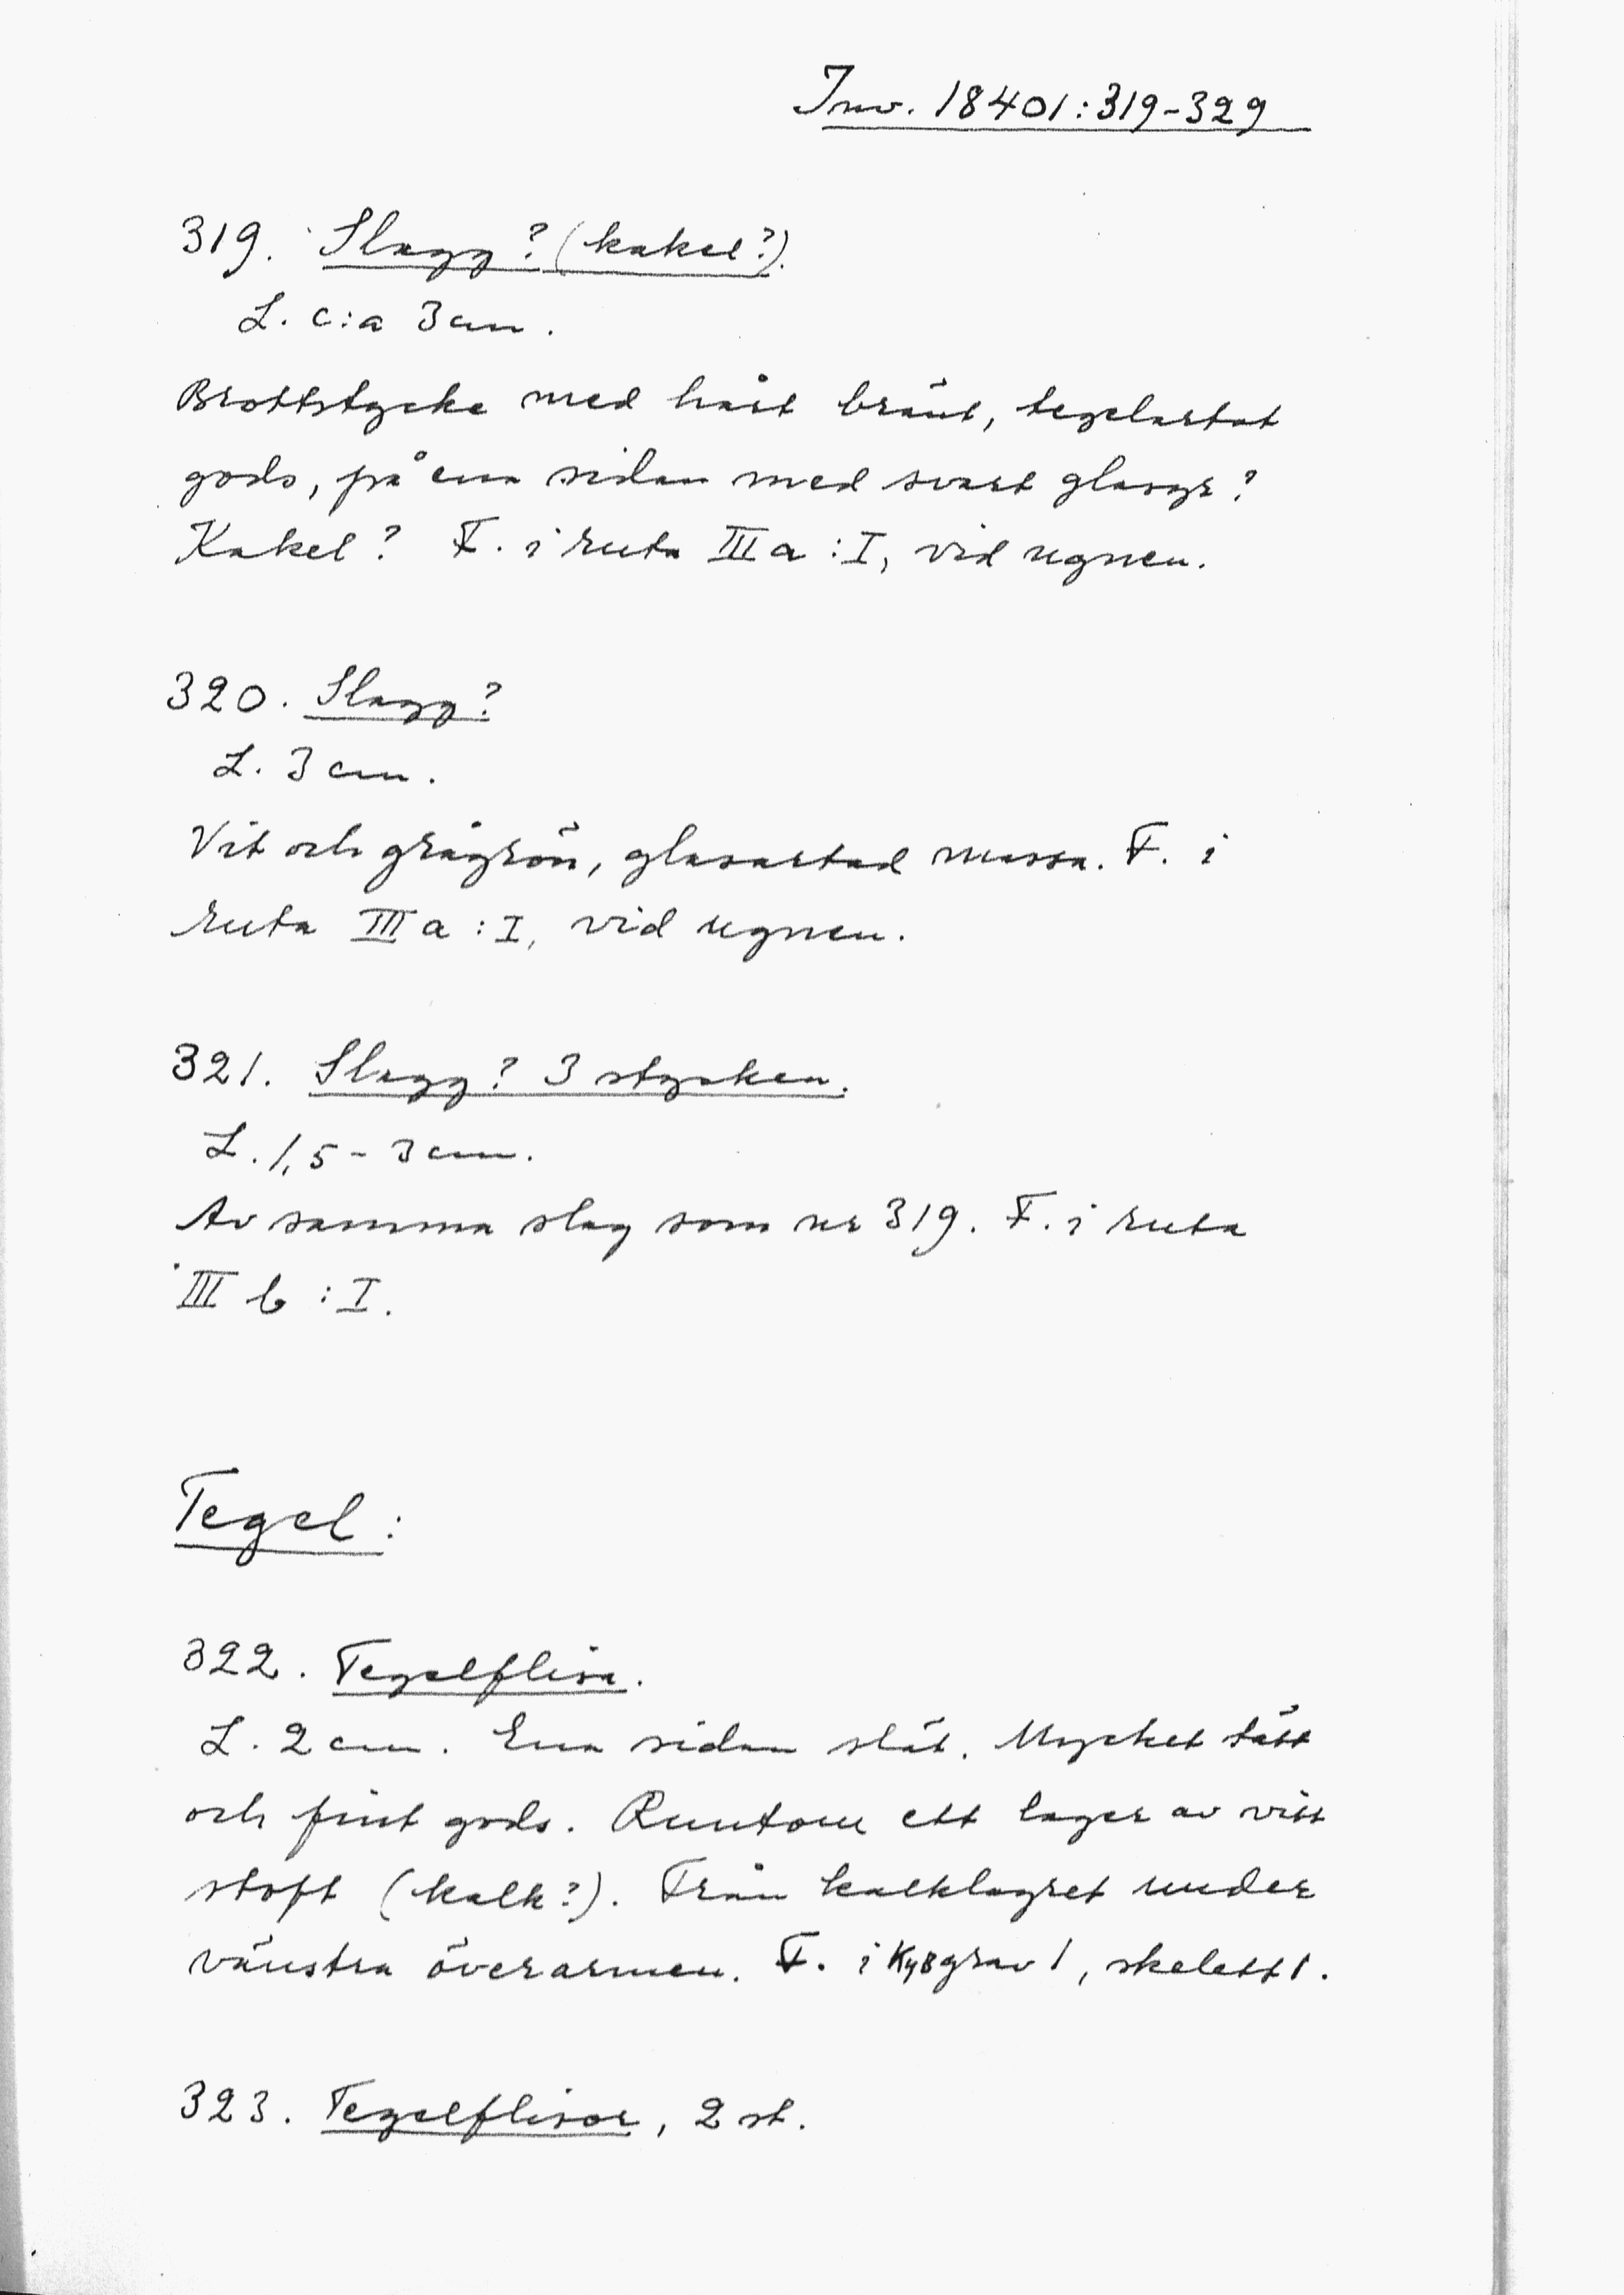 Inv. 18401:319-329
319. Slagg? (kakel?).
L. c:a 3 cm.
Brottstycke med hårt bränt, tegelartat
gods, på ena sidan med svart glasyr?
Kakel? F. i ruta III a : I, vid ugnen.
320. Slagg?
L. 3 cm.
Vit och grågrön, glasartad massa. F. i
ruta III a : I, vid ugnen.
321. Slagg? 3 stycken.
L. 1,5 - 3 cm.
Av samma slag som nr 319. F. i ruta
III b : I.
Tegel:
322. Tegelflisa.
L. 2 cm. Ena sidan slät. Mycket tätt
och fint gods. Runtom ett lager av vitt
stoft (kalk?). Från kalklagret under
vänstra överarmen. F. i grav 1, skelett 1.
323. Tegelflisor, 2 st.